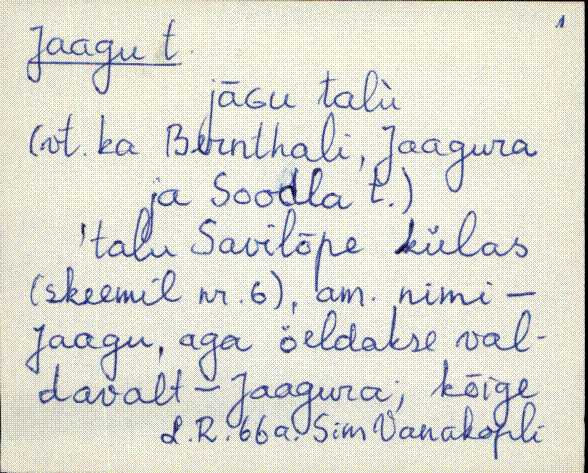 1
Jaagu t.
jāGu talù
(vt. ka Bernthali, Jaagura
ja Soodla t.)
'talu Savilõpe külas
(skeemil nr. 6), am. nimi –
Jaagu, aga öeldakse val-
davalt – Jaagura; kõige
L.R. 66a. Sim Vanakopli